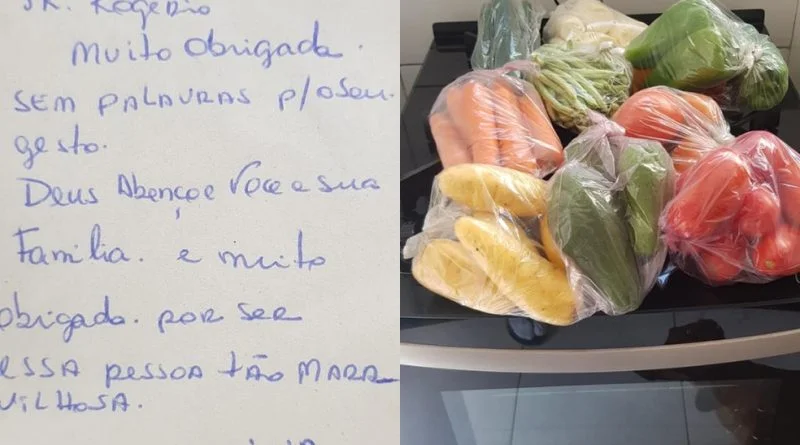 SR. ROGÉRIO
MUITO Obrigada.
SEM PALAVRAS p/o seu
gesto.
Deus Abençoe Voce e sua
Família. e muito
obrigada. por ser
ESSA pessoa tão MARA
VILHOSA.